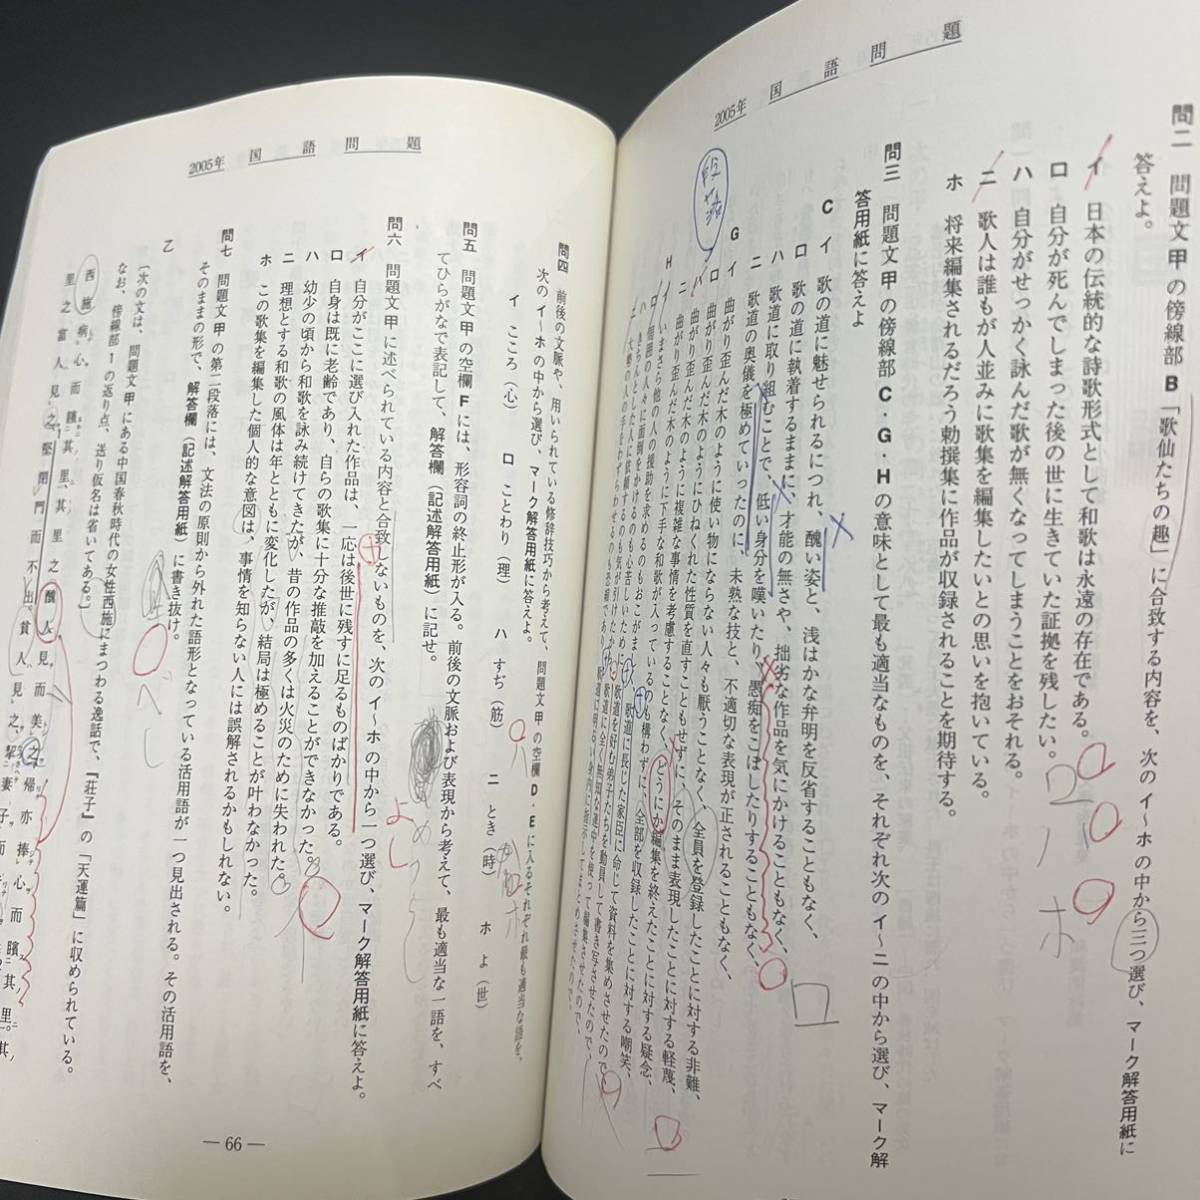 2005年 国語問題
問二 問題文甲の傍線部B「歌仙たちの趣」に合致する内容を、次のイ〜ホの中から三つ選び、マーク解答用紙に
答えよ。
イ 日本の伝統的な詩歌形式として和歌は永遠の存在である。
ロ 自分が死んでしまった後の世に生きていた証拠を残したい。
ハ 自分がせっかく詠んだ歌が無くなってしまうことをおそれる。
ニ 歌人は誰もが人並みに歌集を編集したいとの思いを抱いている。
ホ 将来編集されるだろう勅撰集に作品が収録されることを期待する。
問三 問題文甲の傍線部C・G・Hの意味として最も適当なものを、それぞれ次のイ〜ニの中から選び、マーク解
答用紙に答えよ
C イ 歌の道に魅せられるにつれ、醜い姿と、浅はかな弁明を反省することもなく、
ロ 歌の道に執着するままに、才能の無さや、拙劣な作品を気にかけることもなく、
ハ 歌道に取り組むことで、低い身分を嘆いたり、愚痴をこぼしたりすることもなく、
ニ 歌道の奥儀を極めていったのに、未熟な技と、不適切な表現が正されることもなく、
G イ 曲がり歪んだ木のように使い物にならない人々も厭うことなく、全員を登録したことに対する非難、
ロ 曲がり歪んだ木のようにひねくれた性質を直すこともせずに、そのまま表現したことに対する軽蔑、
ハ 曲がり歪んだ木のように複雑な事情を考慮することなく、とうにか編集を終えたことに対する疑念、
ニ 曲がり歪んだ木のように下手な和歌が入っているのも構わずに、全部を収録したことに対する嘲笑、
H イ いまさら他の人の援助を求めるのもおこがましく、歌道に長じた家臣に命じて資料を集めさせたので、
ロ 周囲の人々に面倒をかけるのも心苦しいため、歌道を好む弟子たちを動員して書き写させたので、
ハ きちんとした人に依頼するのも気が引けたから、歌道に全く無知な連中を使って編集させたので、
ニ 大勢の人の手をわずらわせるのも恐縮であり、歌道に明るい身内に指示してまとめさせたので、
段落
ロ
2005年 国語問題
問四 前後の文脈や、用いられている修辞技巧から考えて、問題文甲の空欄D・Eに入るそれぞれ最も適当な語を、
次のイ〜ホの中から選び、マーク解答用紙に答えよ。
イ こころ(心) ロ ことわり(理) ハ すぢ(筋) ニ とき(時) ホ よ(世)
問五 問題文甲の空欄Fには、形容詞の終止形が入る。前後の文脈および表現から考えて、最も適当な一語を、すべ
てひらがなで表記して、解答欄(記述解答用紙)に記せ。
よし
問六 問題文甲に述べられている内容と合致しないものを、次のイ〜ホの中から一つ選び、マーク解答用紙に答えよ。
イ 自分がここに選び入れた作品は、一応は後世に残すに足るものばかりである。
ロ 自身は既に老齢であり、自らの歌集に十分な推敲を加えることができなかった。
ハ 幼少の頃から和歌を詠み続けてきたが、昔の作品の多くは火災のために失われた。
ニ 理想とする和歌の風体は年とともに変化したが、結局は極めることが叶わなかった。
ホ この歌集を編集した個人的な意図は、事情を知らない人には誤解されるかもしれない。
問七 問題文甲の第二段落には、文法の原則から外れた語形となっている活用語が一つ見出される。その活用語を、
そのままの形で、解答欄(記述解答用紙)に書き抜け。
べし
乙 (次の文は、問題文甲にある中国春秋時代の女性西施にまつわる逸話で、『荘子』の「天運篇」に収められている。
なお、傍線部1の返り点、送り仮名は省いてある。)
西施病心而矉其里、其里之醜人見而美之、帰亦捧心而矉其里。其
里之富人見之、堅閉門而不出、貧人見之、挈妻子而
— 66 —